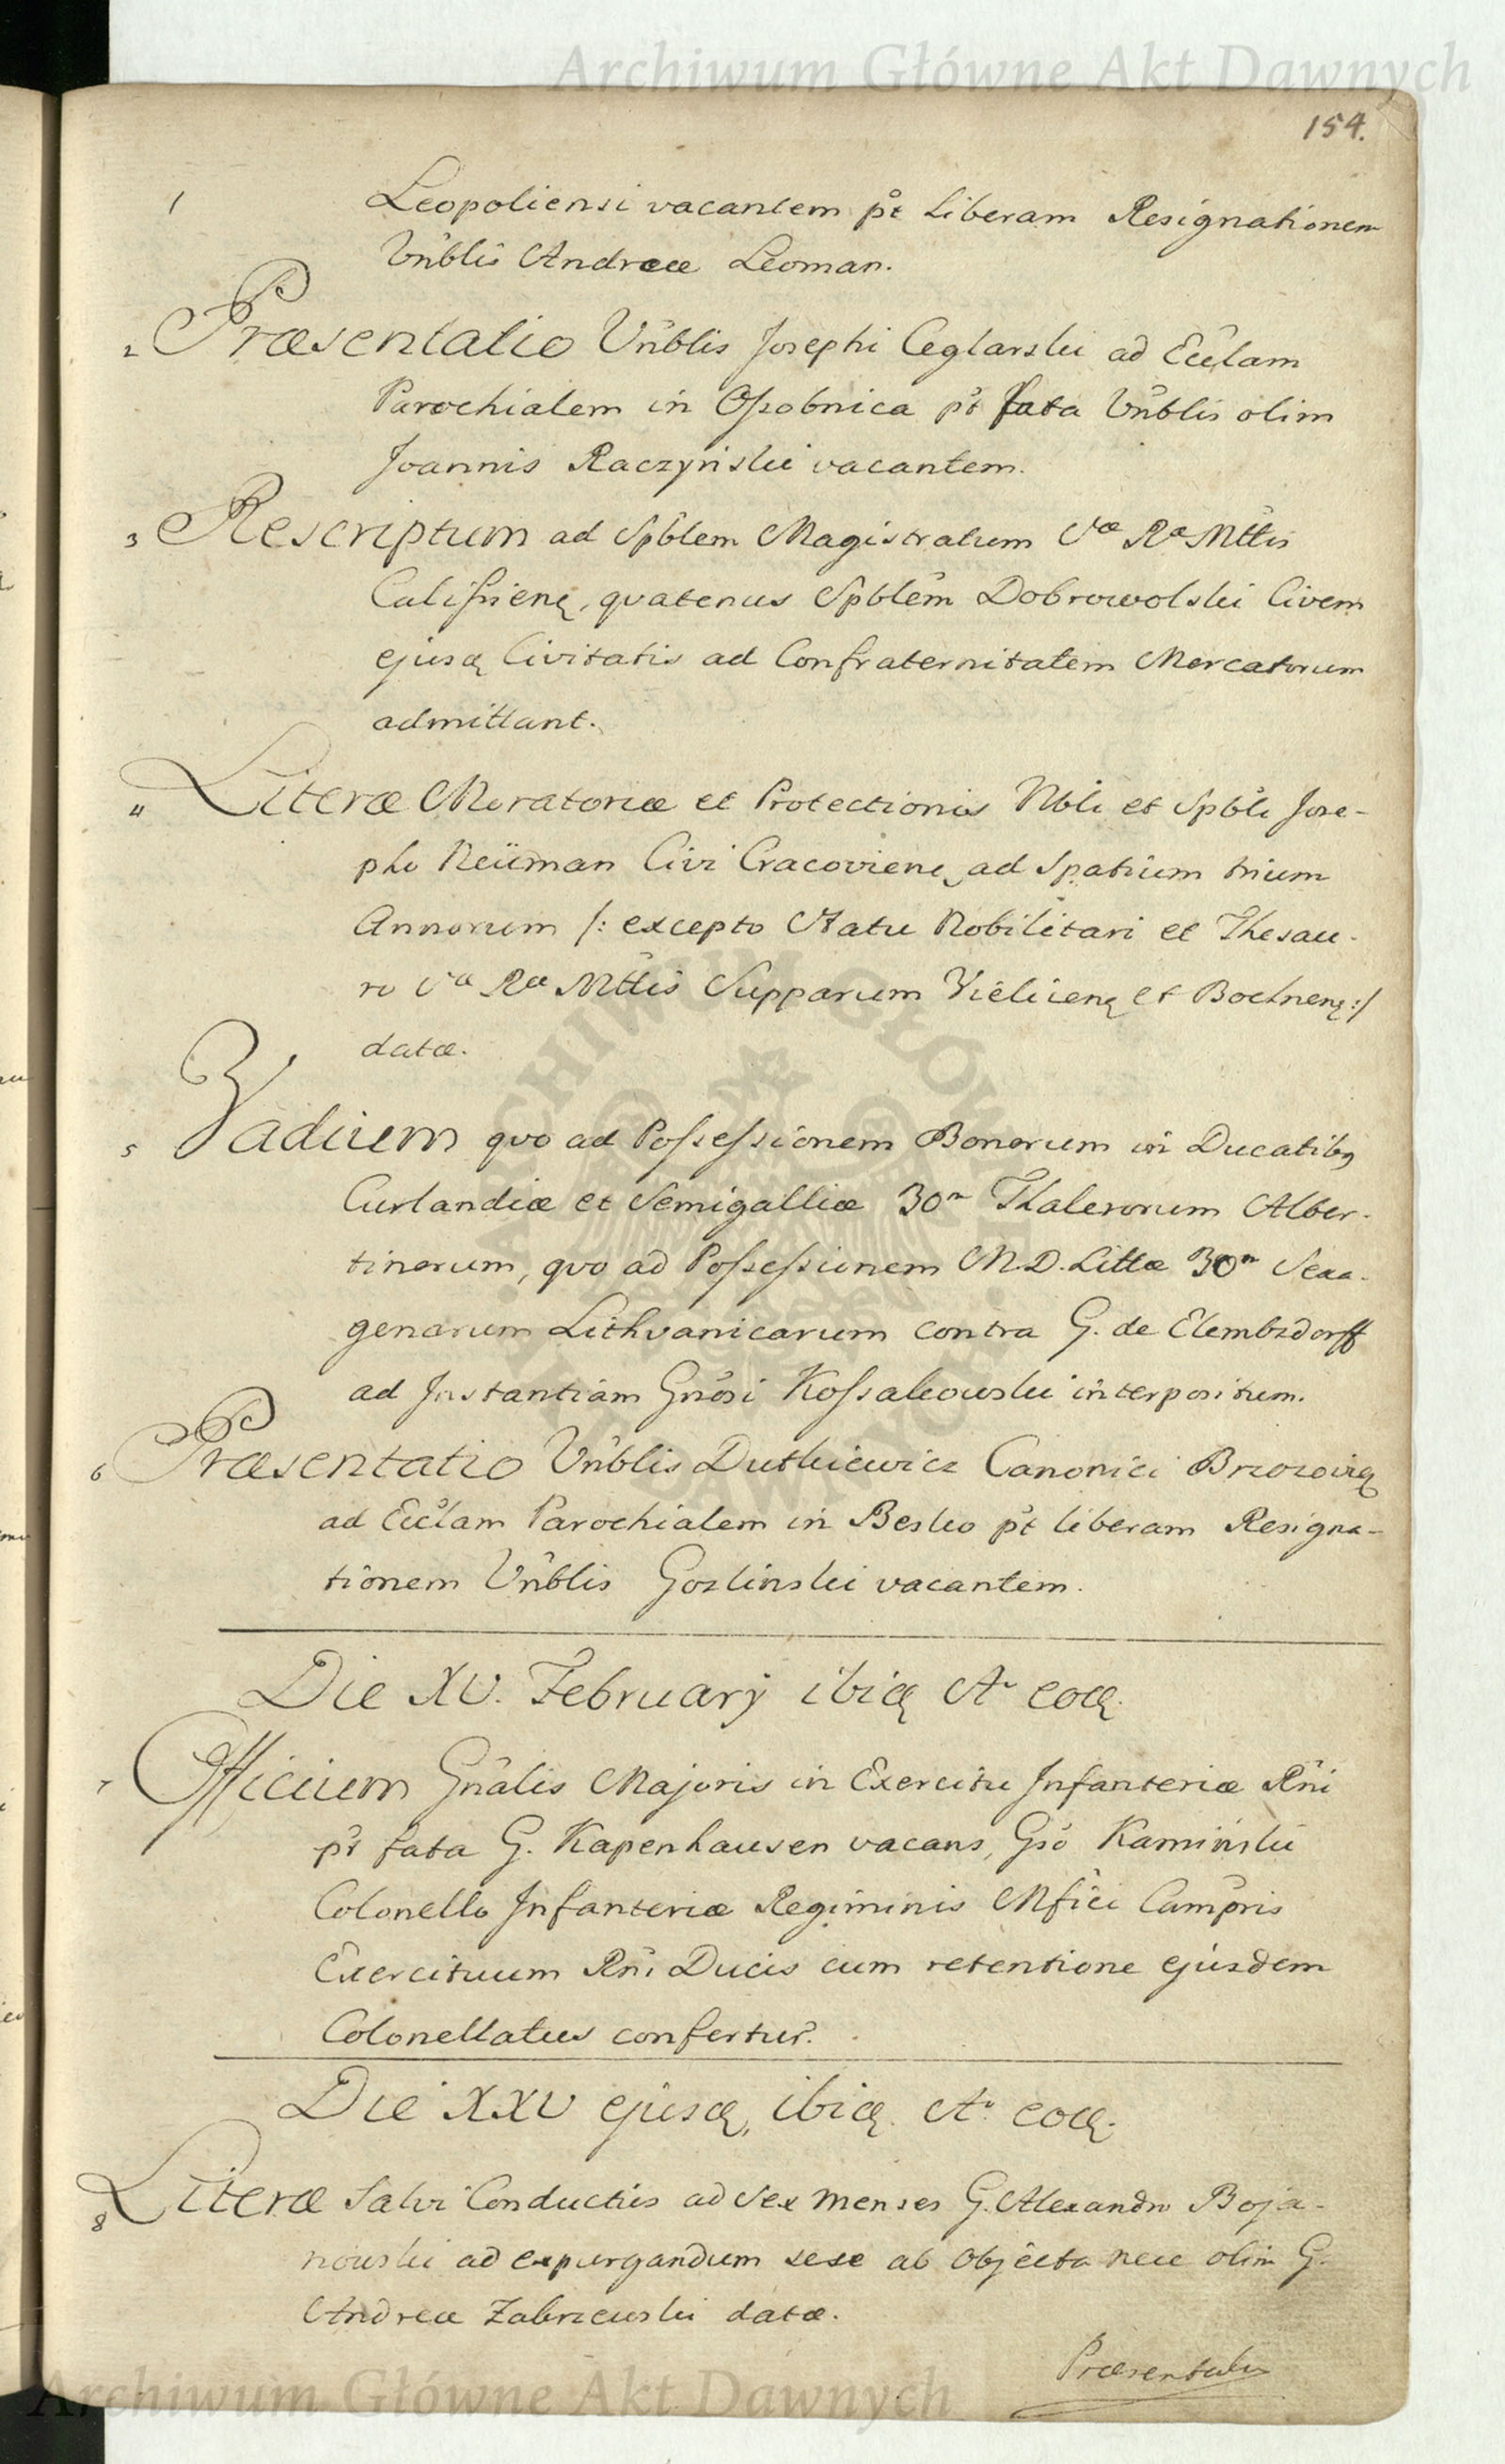 Archiwum Główne Akt Dawnych
154.
1 Leopoliensi vacantem pt Liberam Resignationem
Vnblis Andreæ Leoman.
2 Præsentatio Vnblis Josephi Ceglarski ad Ecclam
Parochialem in Ossobnica pt fata Vnblis olim
Joannis Raczyński vacantem.
3 Rescriptum ad Spblem Magistratum Sæ Ræ Mttis
Calissienę, quatenus Spblem Dobrowolski Civem
ejusq Civitatis ad Confraternitatem Mercatorum
admittant.
4 Literæ Moratoriæ et Protectionis Nbli et Spbli Jose-
pho Neüman Civi Cracovienę ad Spatium trium
Annorum /: excepto Statu Nobilitari et Thesau-
ro Sæ Ræ Mttis Supparum Vielicenę et Bochnenę :/
datæ.
5 Vadium quo ad Possessionem Bonorum in Ducatibq
Curlandiæ et Semigalliæ 30m Thalerorum Alber-
tinorum, quo ad Possessionem M.D. Littæ 30m Sexa-
genarum Lithvanicarum contra G. de Elembsdorff
ad Instantiam Gnosi Kossakowski interpositum.
6 Præsentatio Vnblis Dutkiewicz Canonici Brzozovię
ad Ecclam Parochialem in Besko pt liberam Resigna-
tionem Vnblis Gozlinski vacantem.
Die XV. February ibiq Ao eoq.
7 Officium Gnalis Majoris in Exercitu Infanteriæ Rni
pt fata G. Kapenhausen vacans, Gso Kamiński
Colonello Infanteriæ Regiminis Mfici Campris
Exercituum Rni Ducis cum retentione ejusdem
Colonellatus confertur.
Die XXV ejusq, ibiq. Ao eoq.
8 Literæ Salvi Conductus ad sex menses G. Alexandro Boja-
nowski ad expurgandum sese ab objecta nece olim G.
Andreæ Zakrzewski datæ.
Præsentatio
Archiwum Główne Akt Dawnych